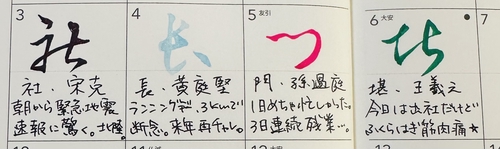 3
社
社・宋克
朝から緊急地震
速報に驚く。北陸。
4
长
長・黄庭堅
ランニングが、3kmで
断念。来年再チャレ。
5 友引
门
門・孫過庭
1日めちゃ忙しかった。
3日連続残業…。
6 大安 ●
堪
堪・王羲之
今日は出社だけど
ふくらはぎ筋肉痛★
7